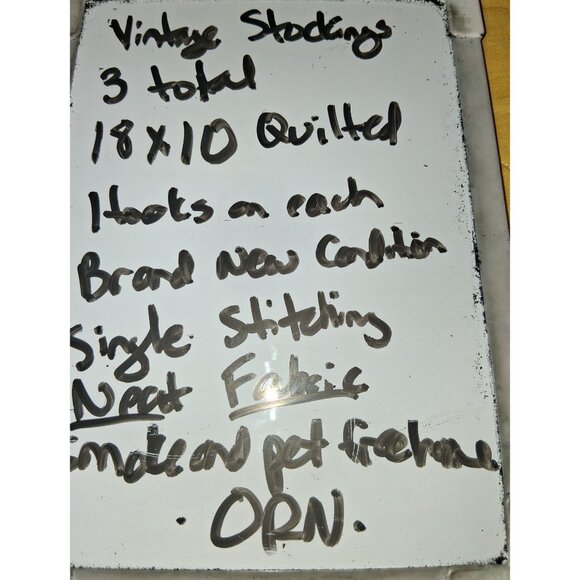 Vintage Stockings
3 total
18x10 Quilted
Hooks on each
Brand New Condition
Single Stitching
Neat Fabric
smoke and pet free home
. ORN.